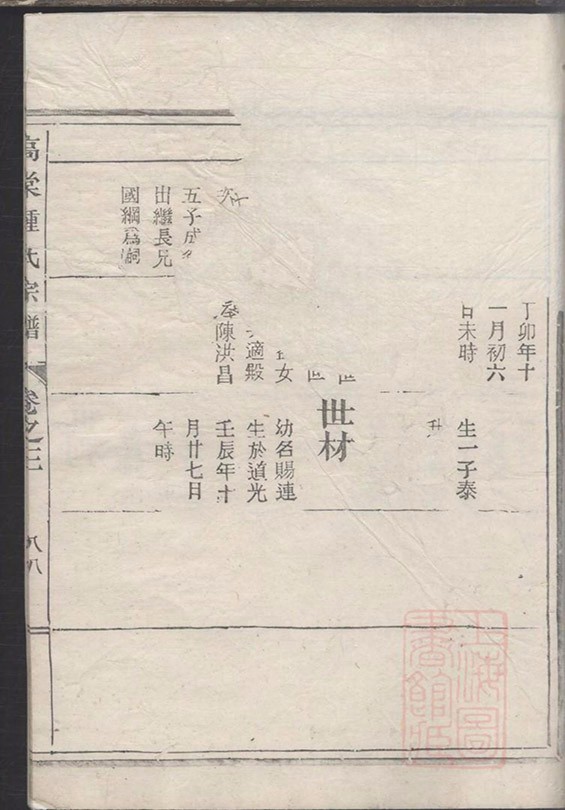 丁卯年十
一月初六
日未時
女
適殿
陳洪昌
五子成
出繼長兄
國綱為嗣
生一子泰
世材
幼名賜連
生於道光
壬辰年十
月廿七日
午時
高棠鍾氏宗譜
卷之三
八八
上海圖書館藏